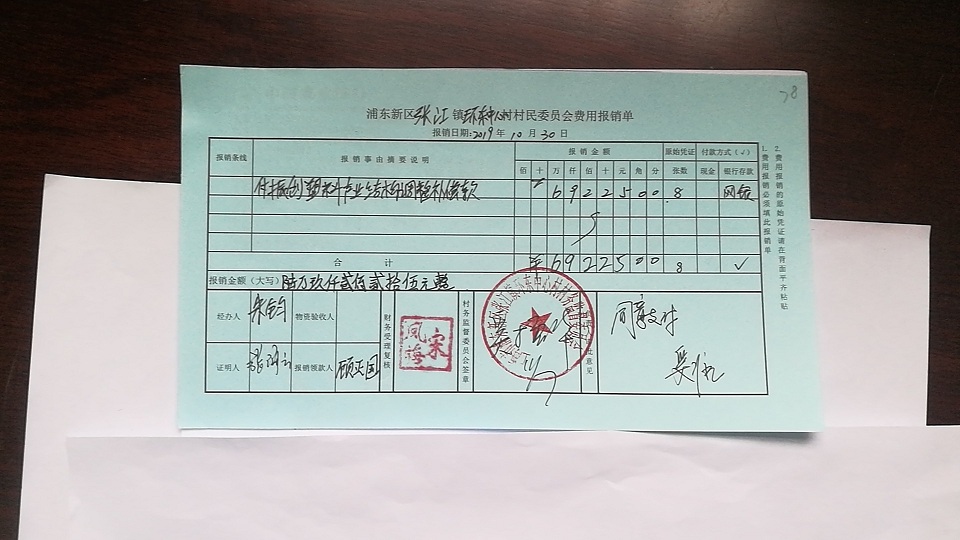 78
浦东新区张江镇环东中心村村民委员会费用报销单
报销日期:2019年10月30日
报销条线 报销事由摘要说明 报销金额 原始凭证 付款方式(√)
佰 十 万 仟 佰 十 元 角 分 张数 现金 银行存款
付振创塑料产业结构调整补偿款 ¥ 6 9 2 2 5 0 0 8 网银
合计 ¥ 6 9 2 2 5 0 0 8 √
报销金额(大写) 陆万玖仟贰佰贰拾伍元整
经办人 朱钧 物资验收人 财务受理复核 宋凤海 村务监督委员会签章 意见 同意支付
证明人 报销领款人 顾灭国
1.费用报销必须填此报销单
2.费用报销的原始凭证请在背面平齐粘贴